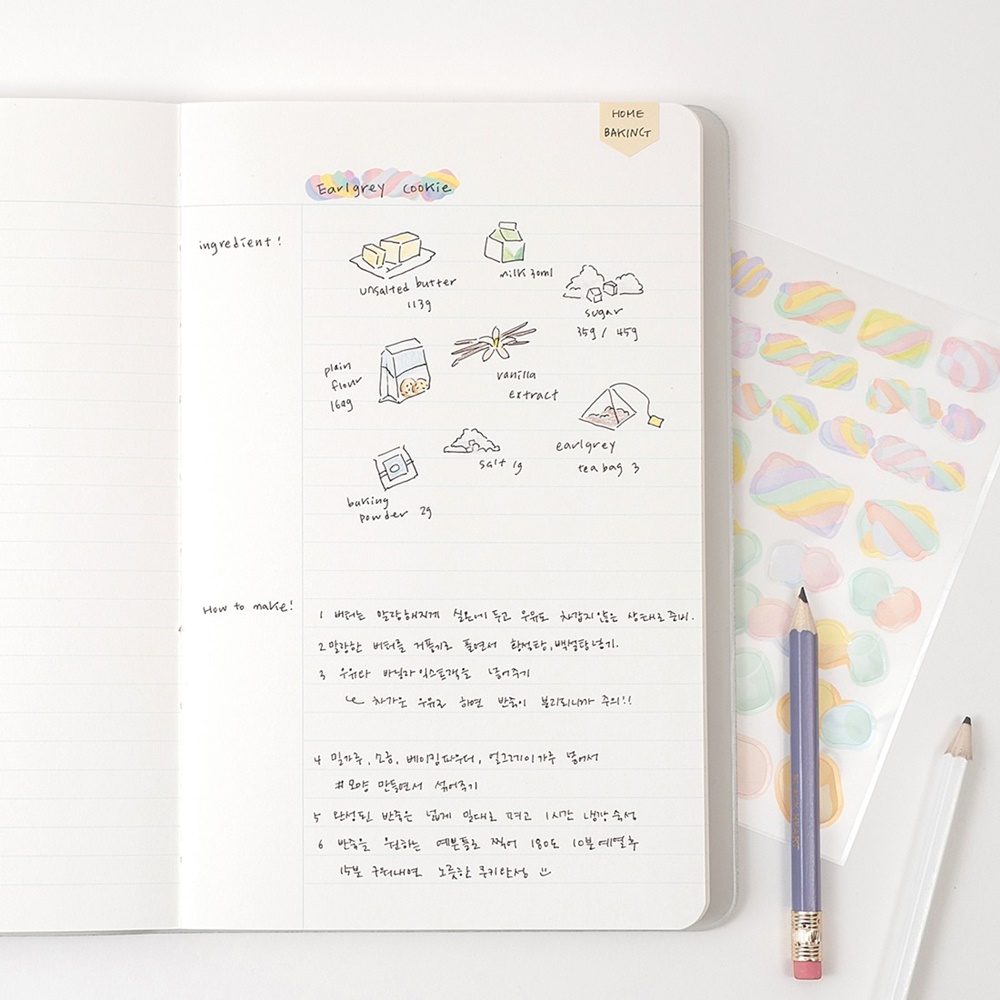 HOME
BAKING
Earlgrey cookie
ingredient!
unsalted butter
113g
milk 30ml
sugar
35g / 45g
plain
flour
160g
vanilla
extract
earlgrey
tea bag 3
salt 1g
baking
powder 2g
How to make!
1 버터는 말랑해지게 실온에 두고 우유도 차갑지 않은 상태로 준비.
2 말랑한 버터를 거품기로 풀면서 황설탕, 백설탕 넣기.
3 우유와 바닐라 익스트랙을 넣어주기
↳ 차가운 우유로 하면 반죽이 분리되니까 주의!!
4 밀가루, 소금, 베이킹파우더, 얼그레이가루 넣어서
#모양 만들면서 섞어주기
5 완성된 반죽은 넓게 밀대로 펴고 1시간 냉장숙성
6 반죽을 원하는 예쁜틀로 찍어 180도 10분 예열 후
15분 구워내면 노릇한 쿠키완성